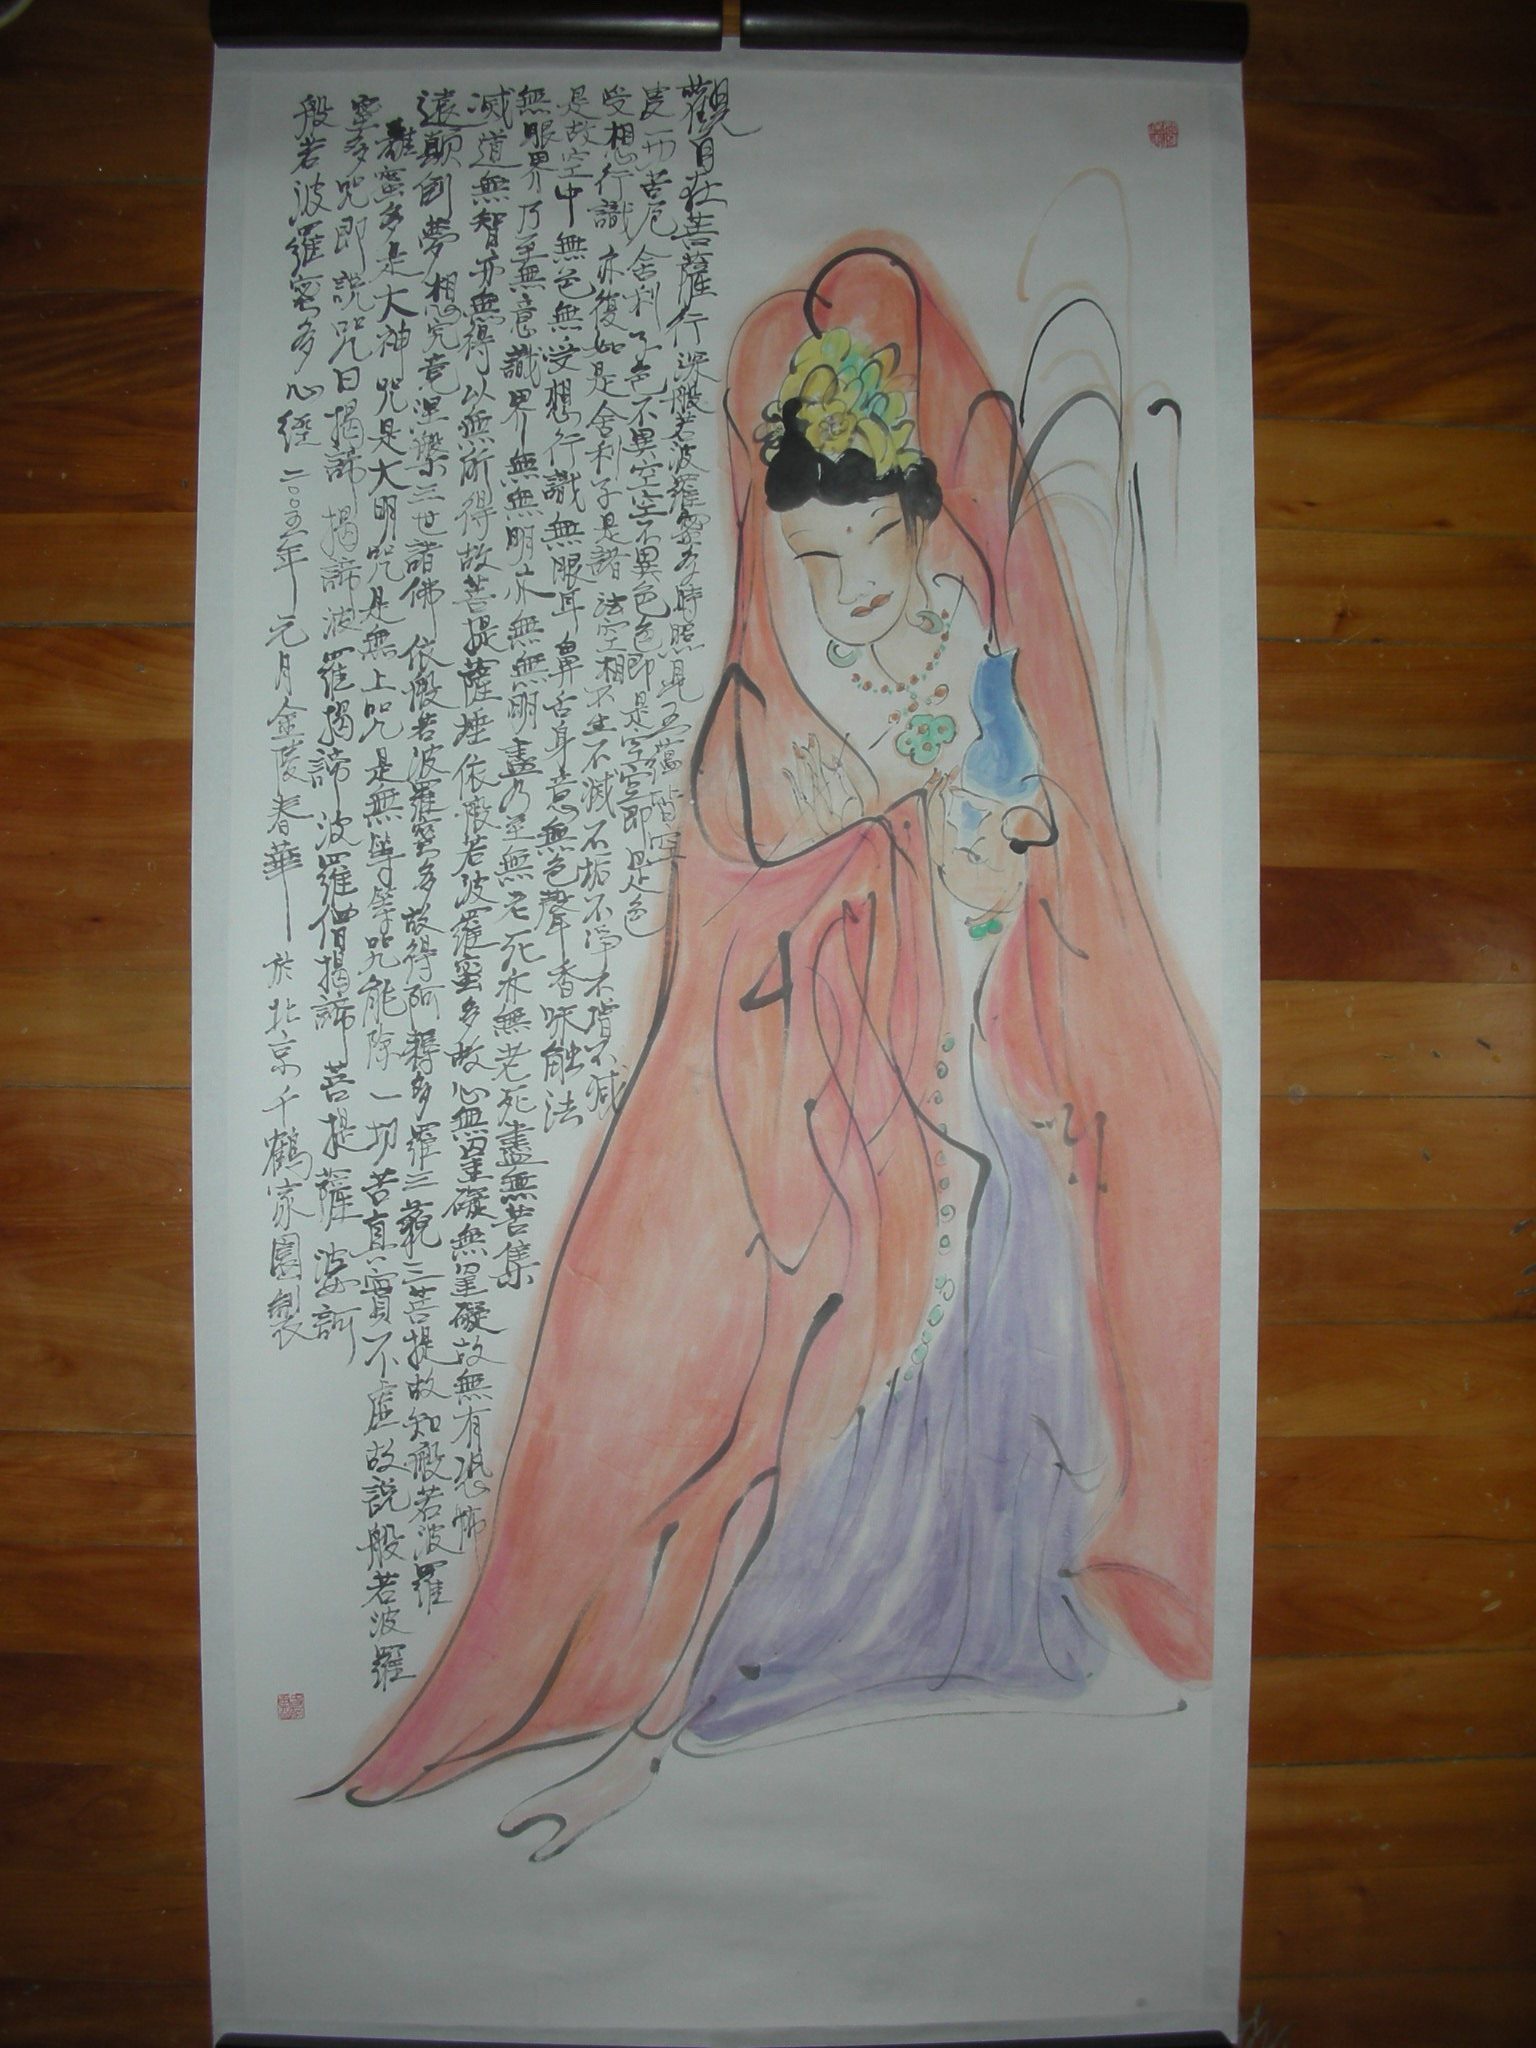 觀自在菩薩行深般若波羅蜜多時照見五蘊皆空
度一切苦厄舍利子色不異空空不異色色即是空空即是色
受想行識亦復如是舍利子是諸法空相不生不滅不垢不淨不增不減
是故空中無色無受想行識無眼耳鼻舌身意無色聲香味觸法
無眼界乃至無意識界無無明亦無無明盡乃至無老死亦無老死盡無苦集
滅道無智亦無得以無所得故菩提薩埵依般若波羅蜜多故心無罣礙無罣礙故無有恐怖
遠顛倒夢想究竟涅槃三世諸佛依般若波羅蜜多故得阿耨多羅三藐三菩提故知般若波羅
離蜜多是大神咒是大明咒是無上咒是無等等咒能除一切苦真實不虛故說般若波羅
蜜多咒即說咒曰揭諦揭諦波羅揭諦波羅僧揭諦菩提薩婆訶
般若波羅蜜多心經二〇〇五年元月金陵春華於北京千鶴家園製